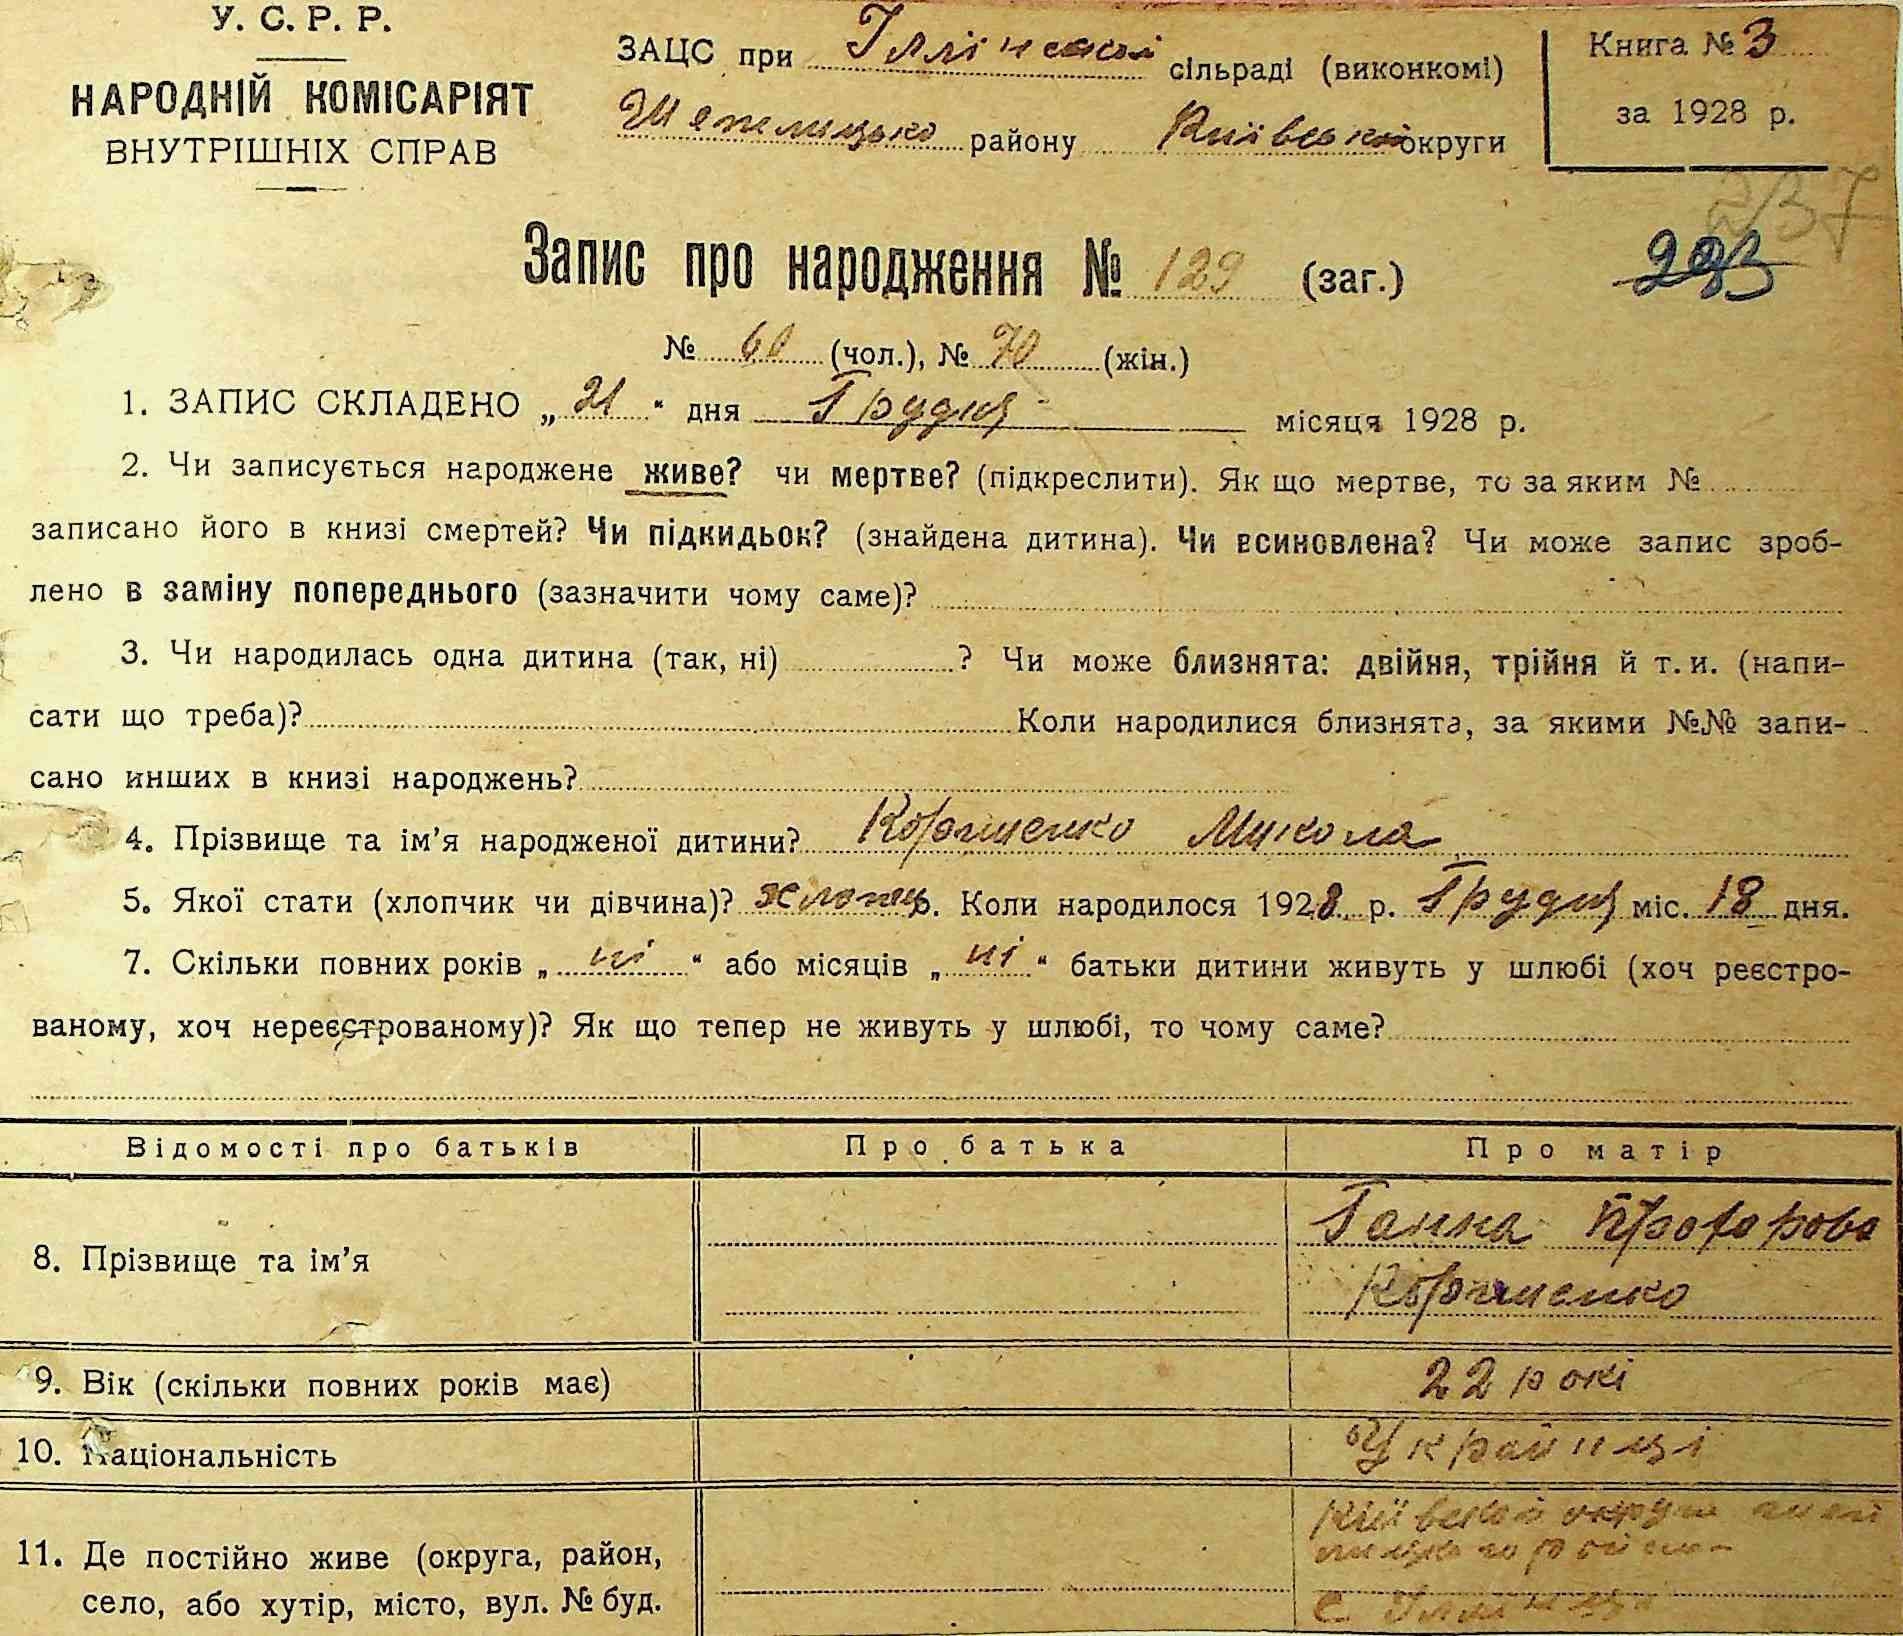 У. С. Р. Р.
НАРОДНІЙ КОМІСАРІЯТ
ВНУТРІШНІХ СПРАВ
ЗАЦС при Іллінской сільраді (виконкомі)
Шепелицько району Київской округи
Книга № 3
за 1928 р.
237
Запис про народження № 129 (заг.)
№ 60 (чол.), № 70 (жін.)
1. ЗАПИС СКЛАДЕНО „ 21 “ дня Грудня місяця 1928 р.
2. Чи записується народжене живе? чи мертве? (підкреслити). Як що мертве, то за яким №
записано його в книзі смертей? Чи підкидьок? (знайдена дитина). Чи всиновлена? Чи може запис зроб-
лено в заміну попереднього (зазначити чому саме)?
3. Чи народилась одна дитина (так, ні) ? Чи може близнята: двійня, трійня й т. и. (напи-
сати що треба)? Коли народилися близнята, за якими №№ запи-
сано инших в книзі народжень?
4. Прізвище та ім’я народженої дитини? Микола
5. Якої стати (хлопчик чи дівчина)? хлопец. Коли народилося 1928 р. Грудня міс. 18 дня.
7. Скільки повних років „ ні “ або місяців „ ні “ батьки дитини живуть у шлюбі (хоч реєстро-
ваному, хоч нереєстрованому)? Як що тепер не живуть у шлюбі, то чому саме?
Відомості про батьків Про батька Про матір
8. Прізвище та ім’я Ганна
9. Вік (скільки повних років має) 22 рокі
10. Національність Українці
11. Де постійно живе (округа, район,
село, або хутір, місто, вул. № буд.
Київской округи
с Іллінці